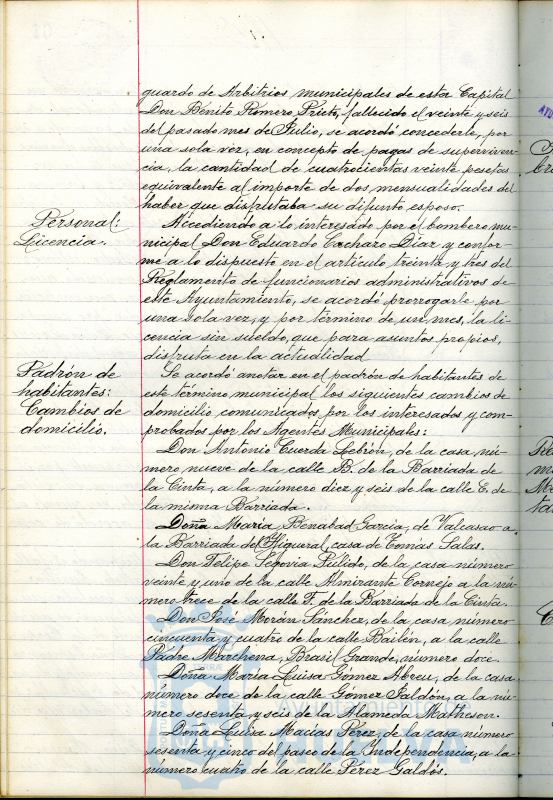 guardo de Arbitrios municipales de esta Capital
Don Benito Romero Prieto, fallecido el veinte y seis
del pasado mes de Julio, se acordó concederle, por
una sola vez, en concepto de pagas de superviven-
cia, la cantidad de cuatrocientas veinte pesetas
equivalente al importe de dos mensualidades del
haber que disfrutaba su difunto esposo.
Personal:
Licencia.
Accediendo a lo interesado por el bombero mu-
nicipal Don Eduardo Díaz y confor-
me a lo dispuesto en el artículo treinta y tres del
Reglamento de funcionarios administrativos de
este Ayuntamiento, se acordó prorrogarle por
una sola vez, y por término de un mes, la li-
cencia sin sueldo, que para asuntos propios,
disfruta en la actualidad
Padrón de
habitantes:
Cambios de
domicilio.
Se acordó anotar en el padrón de habitantes de
este término municipal los siguientes cambios de
domicilio comunicados por los interesados y com-
probados por los Agentes Municipales:
Don Antonio Cuerda Lebrón, de la casa nú-
mero nueve de la calle B. de la Barriada de
la Cinta, a la número diez y seis de la calle E. de
la misma Barriada.
Doña María Benabad García, de Valcasao a
la Barriada del Higueral, casa de Tomás Salas.
Don Felipe Segovia Pulido, de la casa número
veinte y uno de la calle Almirante Cornejo a la nú-
mero trece de la calle F. de la Barriada de la Cinta.
Don José Morán Sánchez, de la casa número
cincuenta y cuatro de la calle Bailén, a la calle
Padre Marchena, Brasil Grande, número doce.
Doña María Luisa Gómez Abreu, de la casa
número doce de la calle Gómez Jaldón, a la nú-
mero sesenta y seis de la Alameda Matheson.
Doña Luisa Macías Pérez, de la casa número
sesenta y cinco del paseo de la Independencia, a la
número cuatro de la calle Pérez Galdós.
Ayuntamiento de